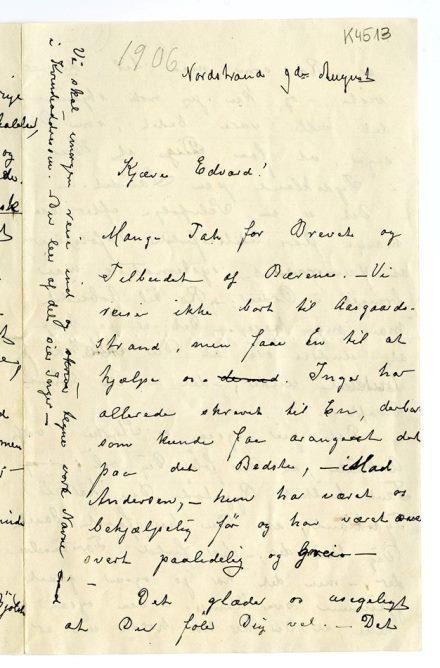 1906
K4513
Nordstrand 9de August
Kjære Edvard!
Mange Tak for Brevet og
Tilbudet af Bærene. – Vi
reiser ikke bort til Aasgaard-
strand, men faar En til at
hjælpe os. Inger har
allerede skrevet til En, derborte
som kunde faa arangeert det
paa det Bedste, – Mad
Andersen, – hun har været os
behjælpelig før og har været
svert paalidelig og Grei –
Det glæder os usegeligt
at Du føler Dig vel. – Det
Vi skal imorgen reise ind og tegne vork Navne
i Kondoladressen. Du leer af det sier Inger –